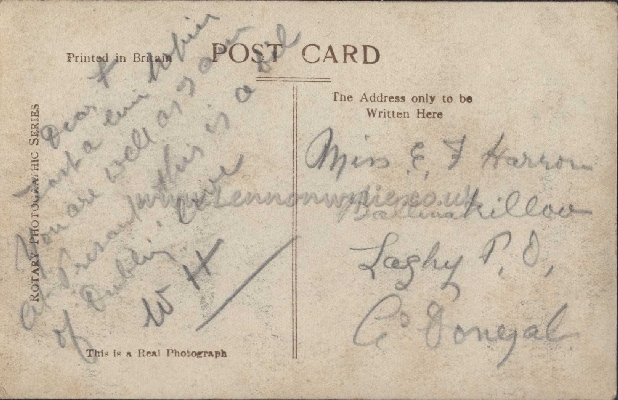 POST CARD
Printed in Britain
The Address only to be
Written Here
ROTARY PHOTOGRAPHIC SERIES
Dear F
Just a line hopin
You are well as I am
At Present this is a bit
of Dublin love
W H
Miss E F Harron
killow
Laghy P, O,
Co Donegal
www.lennonwylie.co.uk
This is a Real Photograph